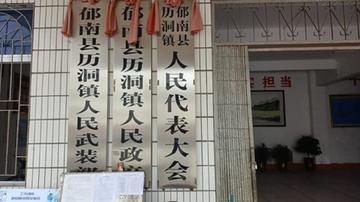 郁南县历洞镇人民武装部
郁南县历洞镇人民政府
郁南县
历洞镇
人民代表大会
担当